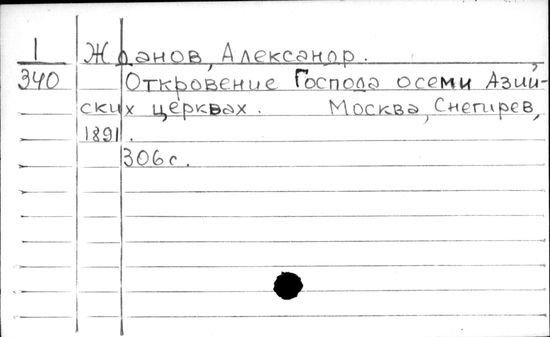 1 Жданов, Александр.
340 Откровение Господа осеми Азий-
ских церквах. Москва, Снегирев,
1891.
306 с.